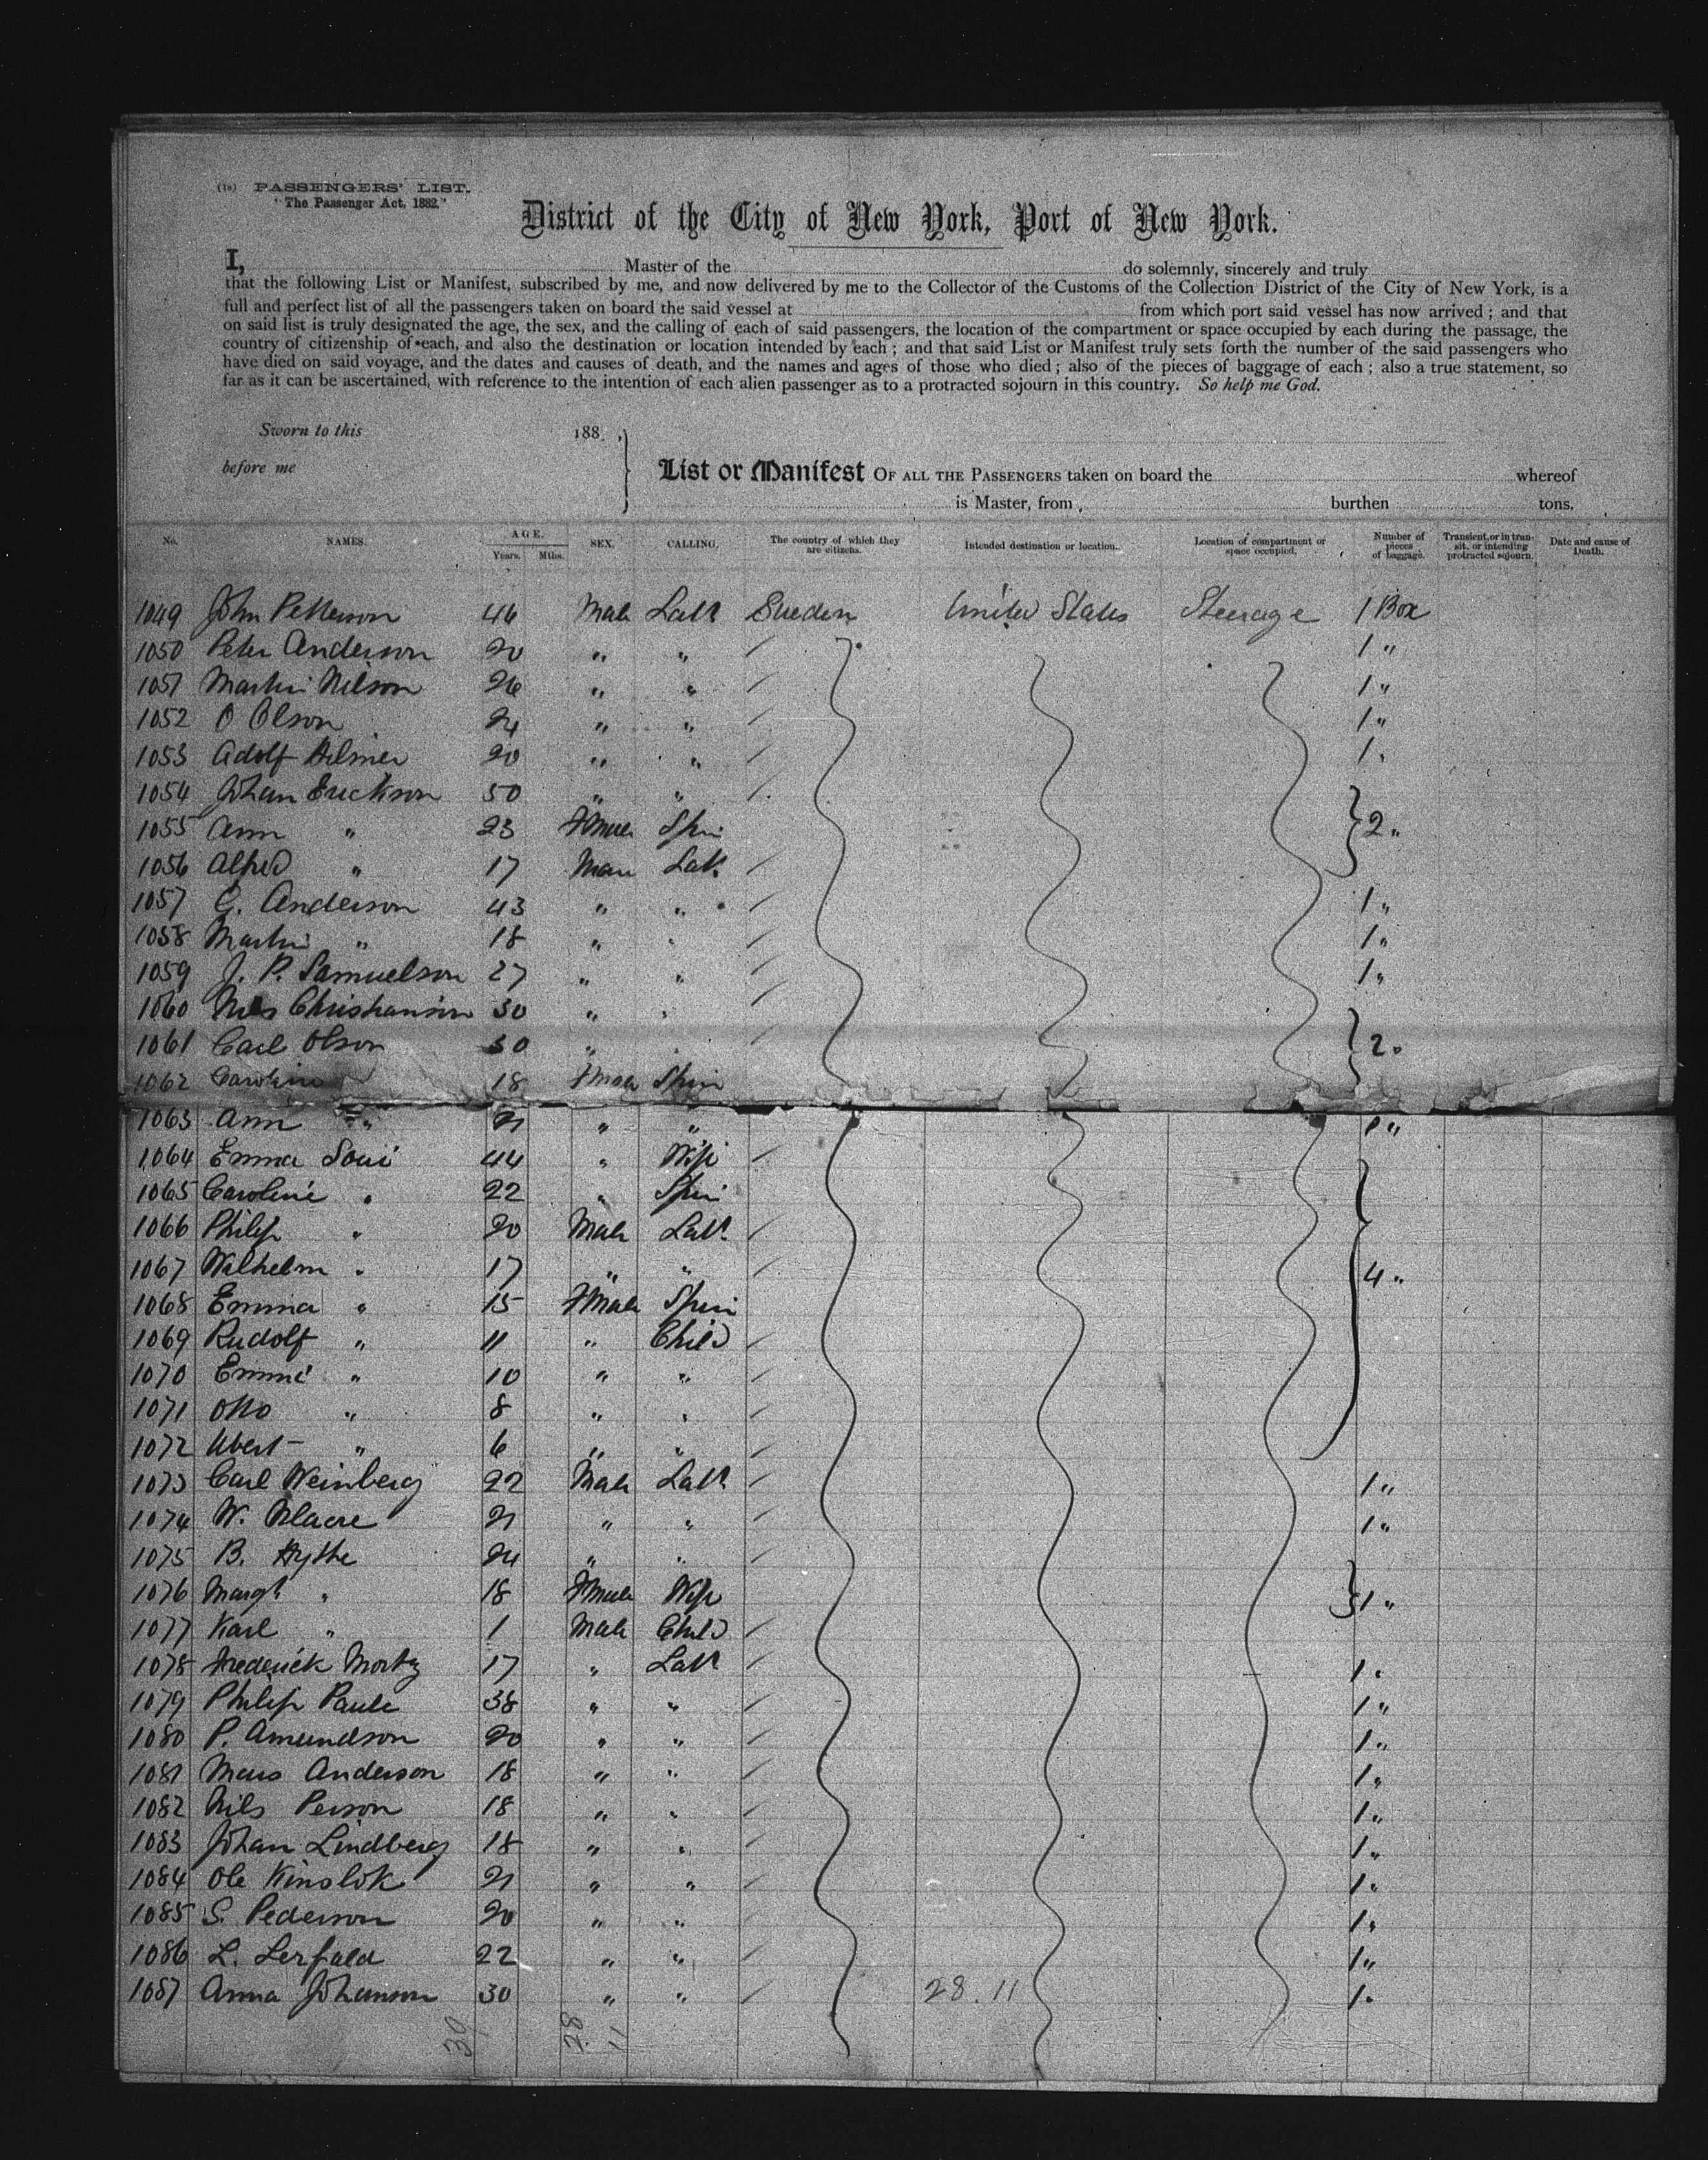 (18) PASSENGERS' LIST.
"The Passenger Act, 1882."
District of the City of New York, Port of New York.
I, Master of the do solemnly, sincerely and truly
that the following List or Manifest, subscribed by me, and now delivered by me to the Collector of the Customs of the Collection District of the City of New York, is a
full and perfect list of all the passengers taken on board the said vessel at from which port said vessel has now arrived; and that
on said list is truly designated the age, the sex, and the calling of each of said passengers, the location of the compartment or space occupied by each during the passage, the
country of citizenship of each, and also the destination or location intended by each; and that said List or Manifest truly sets forth the number of the said passengers who
have died on said voyage, and the dates and causes of death, and the names and ages of those who died; also of the pieces of baggage of each; also a true statement, so
far as it can be ascertained, with reference to the intention of each alien passenger as to a protracted sojourn in this country. So help me God.
Sworn to this 188 .
before me
List or Manifest OF ALL THE PASSENGERS taken on board the whereof
is Master, from burthen tons.
No. NAMES. AGE. Years. Mths. SEX. CALLING. The country of which they are citizens. Intended destination or location. Location of compartment or space occupied. Number of pieces of baggage. Transient, or in transit, or intending protracted sojourn. Date and cause of Death.
1049 John Petterson 46 Male Labr Sweden United States Steerage 1 Box
1050 Peter Anderson 20 " " 1 "
1051 Martin Nilson 26 " " 1 "
1052 O Olson 24 " " 1 "
1053 Adolf Hilmer 20 " " 1 "
1054 Johan Erickson 50 " "
1055 Ann " 23 Fmale Spin 2 "
1056 Alfred " 17 Male Labr
1057 G. Anderson 43 " " 1 "
1058 Martin " 18 " " 1 "
1059 J. P. Samuelson 27 " " 1 "
1060 Nils Christianson 30 " "
1061 Carl Olson 30 " " 2 "
1062 Caroline 18 Fmale Spin
1063 Ann " 21 " " 1 "
1064 Emma Soui 44 " Wife
1065 Caroline " 22 " Spin
1066 Philip " 20 Male Labr
1067 Wilhelm " 17 " " 4 "
1068 Emma " 15 Fmale Spin
1069 Rudolf " 11 " Child
1070 Emmi " 10 " "
1071 Otto " 8 " "
1072 Albert " 6 " "
1073 Carl Weinberg 22 Male Labr 1 "
1074 W. 21 " " 1 "
1075 B. Hythe 24 " "
1076 Margt " 18 Fmale Wife 1 "
1077 Karl " 1 Male Child
1078 Frederick Mortz 17 " Labr 1 "
1079 Philip Paule 38 " " 1 "
1080 P. Amundson 20 " " 1 "
1081 Mars Anderson 18 " " 1 "
1082 Nils Person 18 " " 1 "
1083 Johan Lindberg 18 " " 1 "
1084 Ole Kinslok 21 " " 1 "
1085 S. Pederson 20 " " 1 "
1086 L. Lerfald 22 " " 1 "
1087 Anna Johanson 30 " " 28.11 1 "
39 28 11